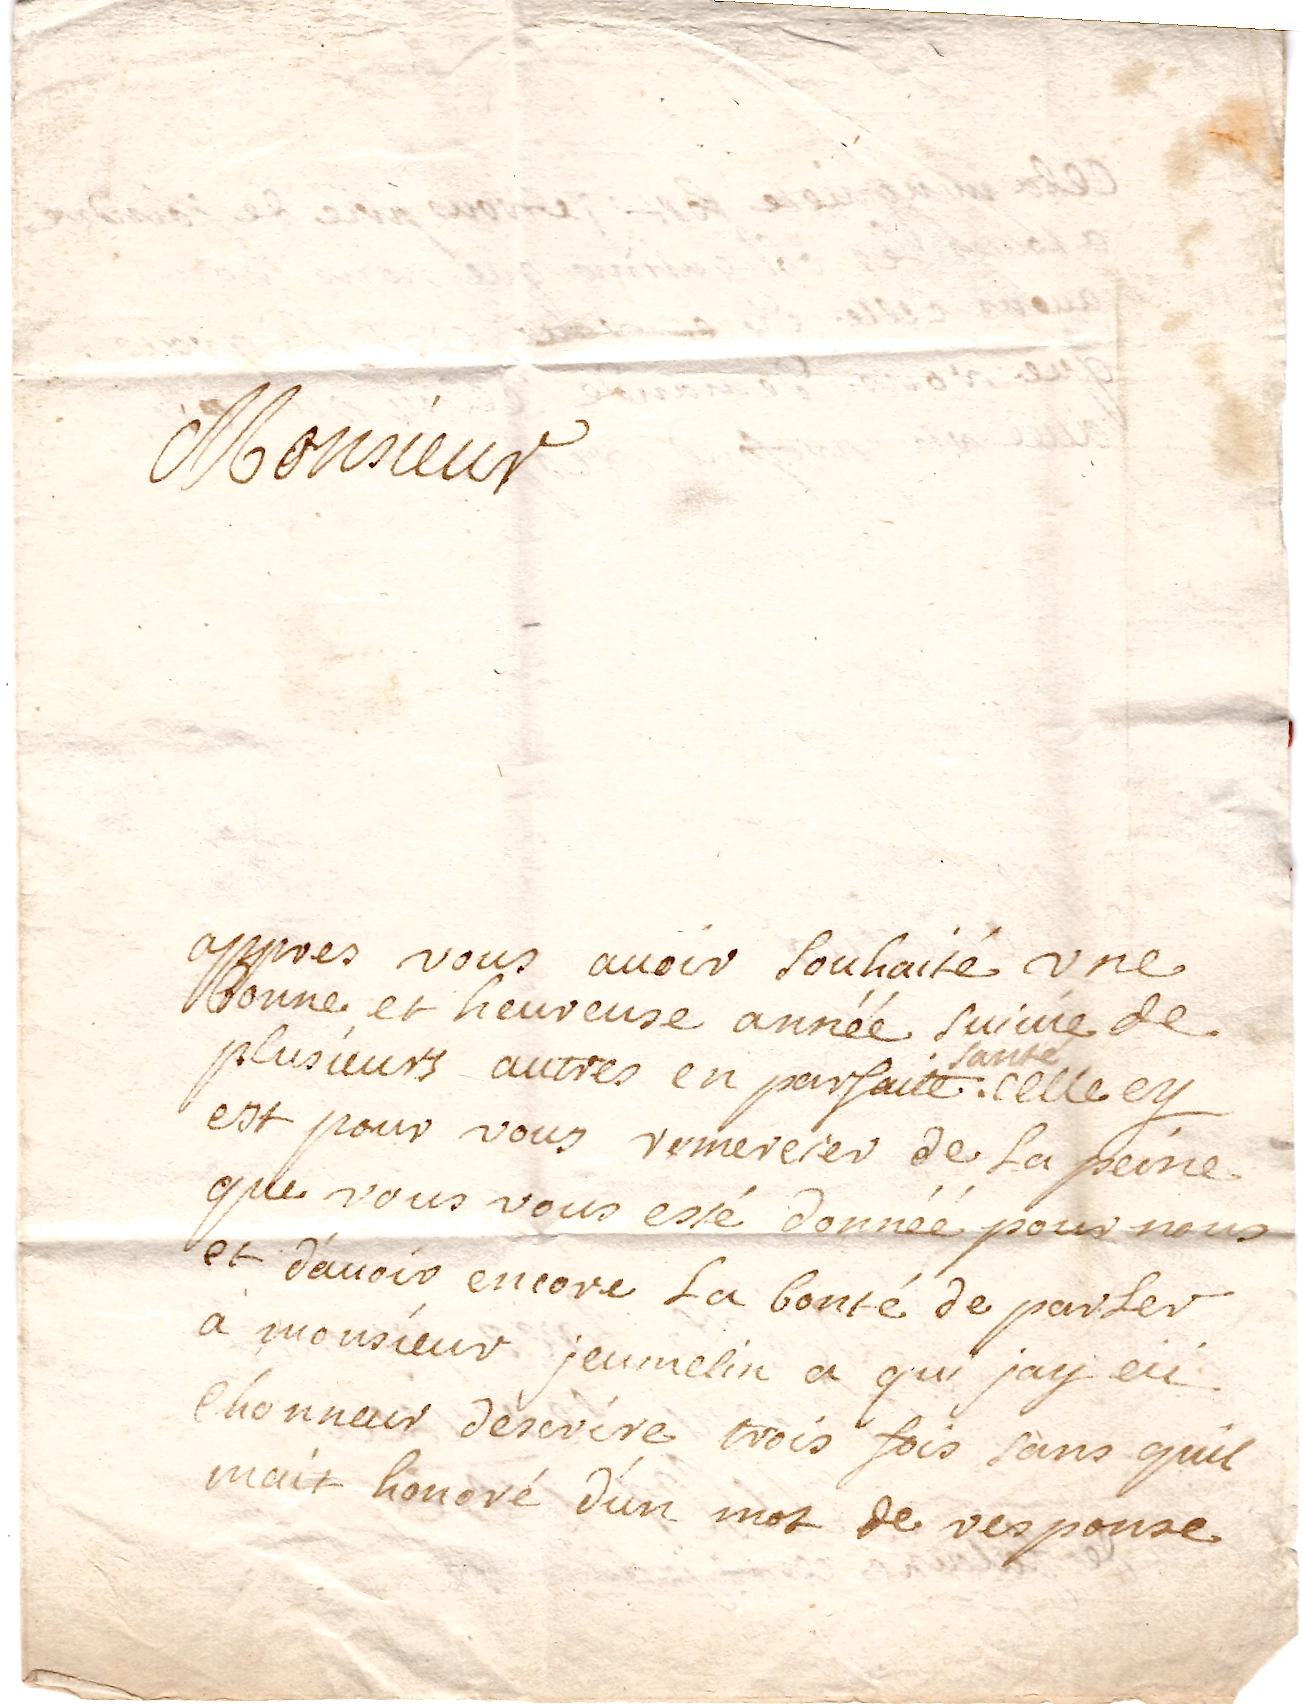 Monsieur
appres vous auoir souhaité vne
bonne et heureuse année suiuie de
plusieurs autres en parfaite santé celle cy
est pour vous remercier de la peine
que vous vous esté donnéé pour nous
et dauoir encore la bonté de parler
à monsieur jeumelin a qui jay eü
lhonneur descrire trois fois sans quil
mait honoré dún mot de response